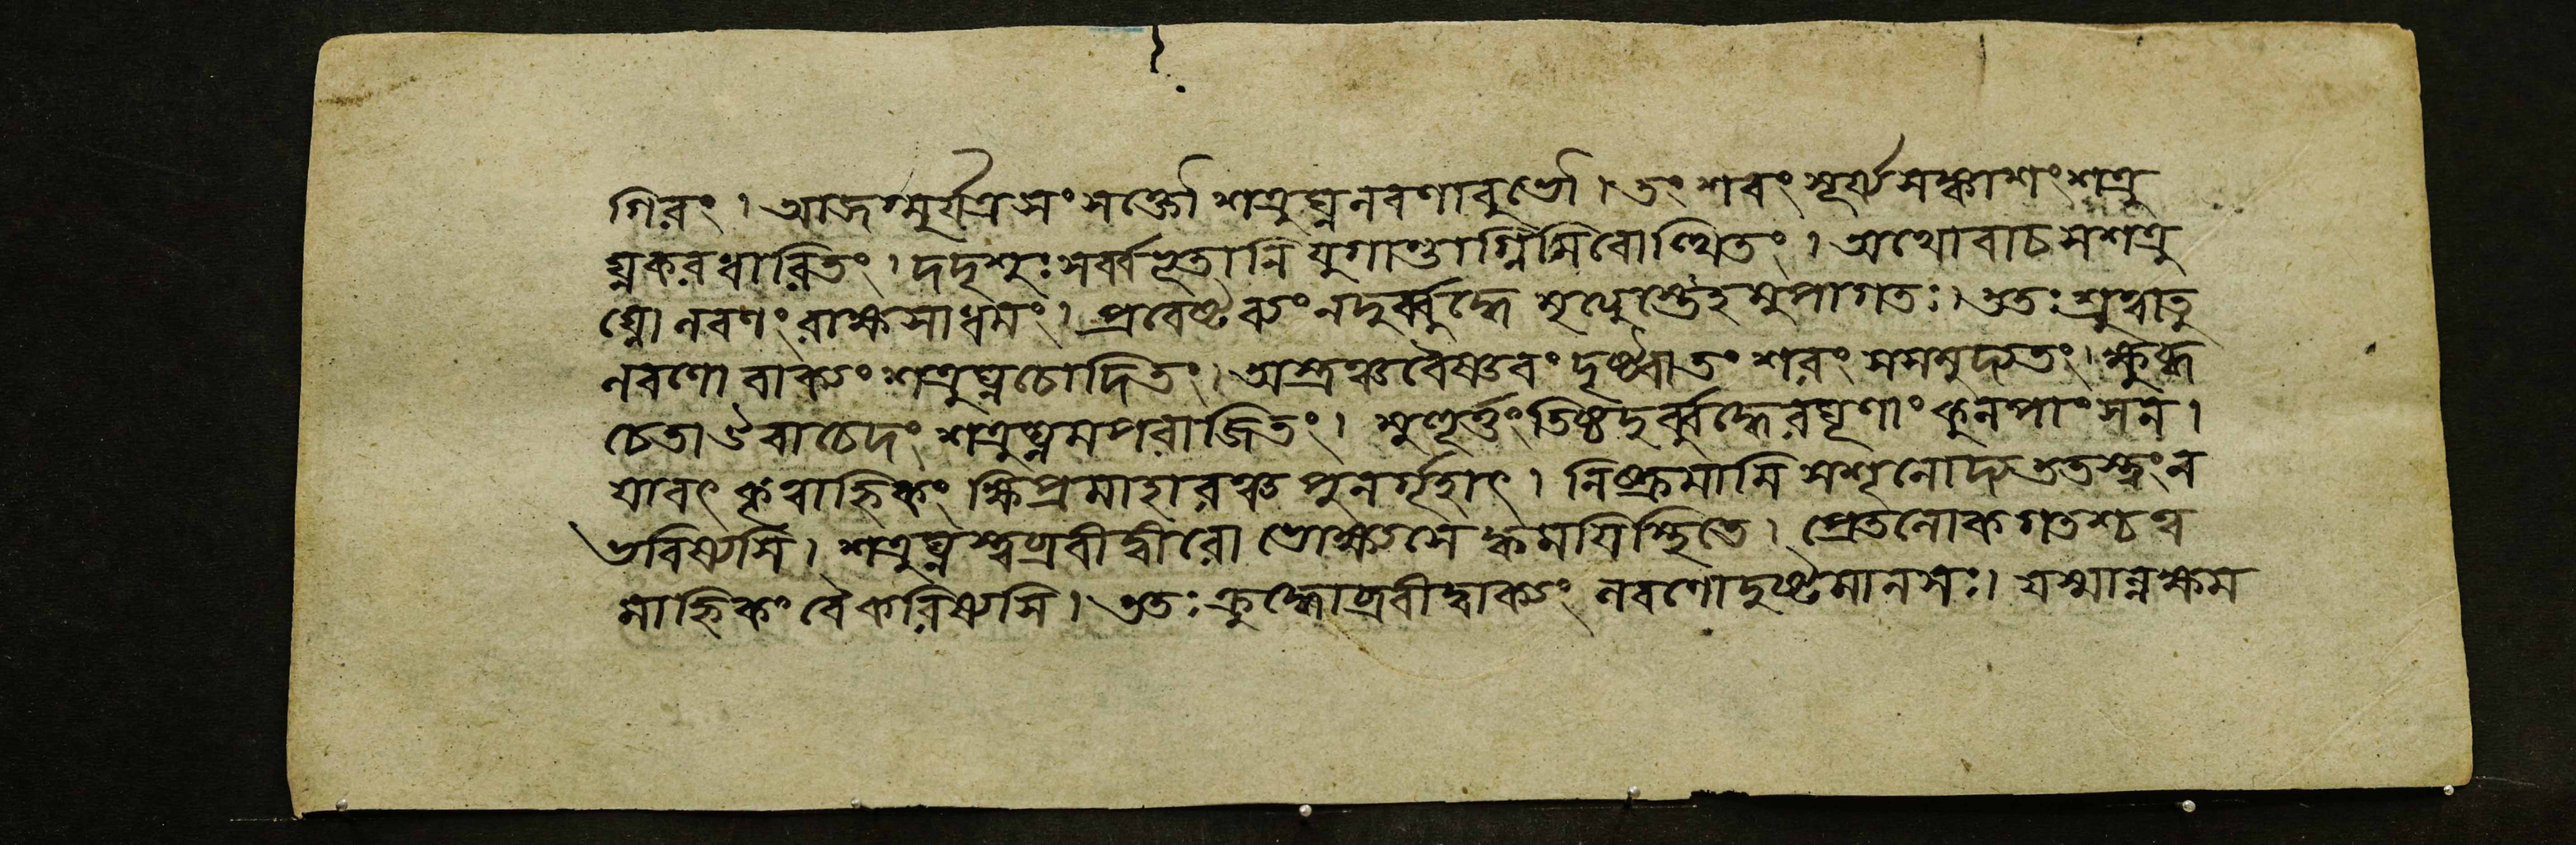 গিরং। আজগ্মুর্যত্রসংসক্তৌ শত্রুঘ্নলবণাবুভৌ। তং শরং সূর্য্যসঙ্কাশং শত্রু
ঘ্নকরধারিতং। দদৃশুঃ সর্ব্বভূতানি যুগান্তাগ্নিমিবোত্থিতং। অথোবাচ স শত্রু
ঘ্নো লবণং রাক্ষসাধমং। প্রবেষ্টব্যং ন দুর্ব্বুদ্ধে মৃত্যুস্তেহমুপাগতঃ। ততঃ শ্রুত্বা তু
লবণো বাক্যং শত্রুঘ্নচোদিতং। অস্ত্রঞ্চ বৈষ্ণবং দৃষ্ট্বা তং শরং সমমুদ্যতং। ক্ষুব্ধ
চেতা উবাচেদং শত্রুঘ্নমপরাজিতং। মুহূর্ত্তং তিষ্ঠ দুর্ব্বুদ্ধে রঘূণাং কুলপাংসন।
যাবৎ কৃত্বাহ্নিকং ক্ষিপ্রমাহারঞ্চ পুনর্গৃহাৎ। নিষ্ক্রমামি সশূলোদ্য ততস্ত্বং ন
ভবিষ্যসি। শত্রুঘ্নস্ত্বব্রবীদ্বীরো ভোক্ষ্যসে ক্ব ময়ি স্থিতে। প্রেতলোকগতশ্চ ত্ব
মাহ্নিকং বৈ করিষ্যসি। ততঃ ক্রুদ্ধোব্রবীদ্বাক্যং লবণো দুষ্টমানসঃ। যস্মান্নক্ষম